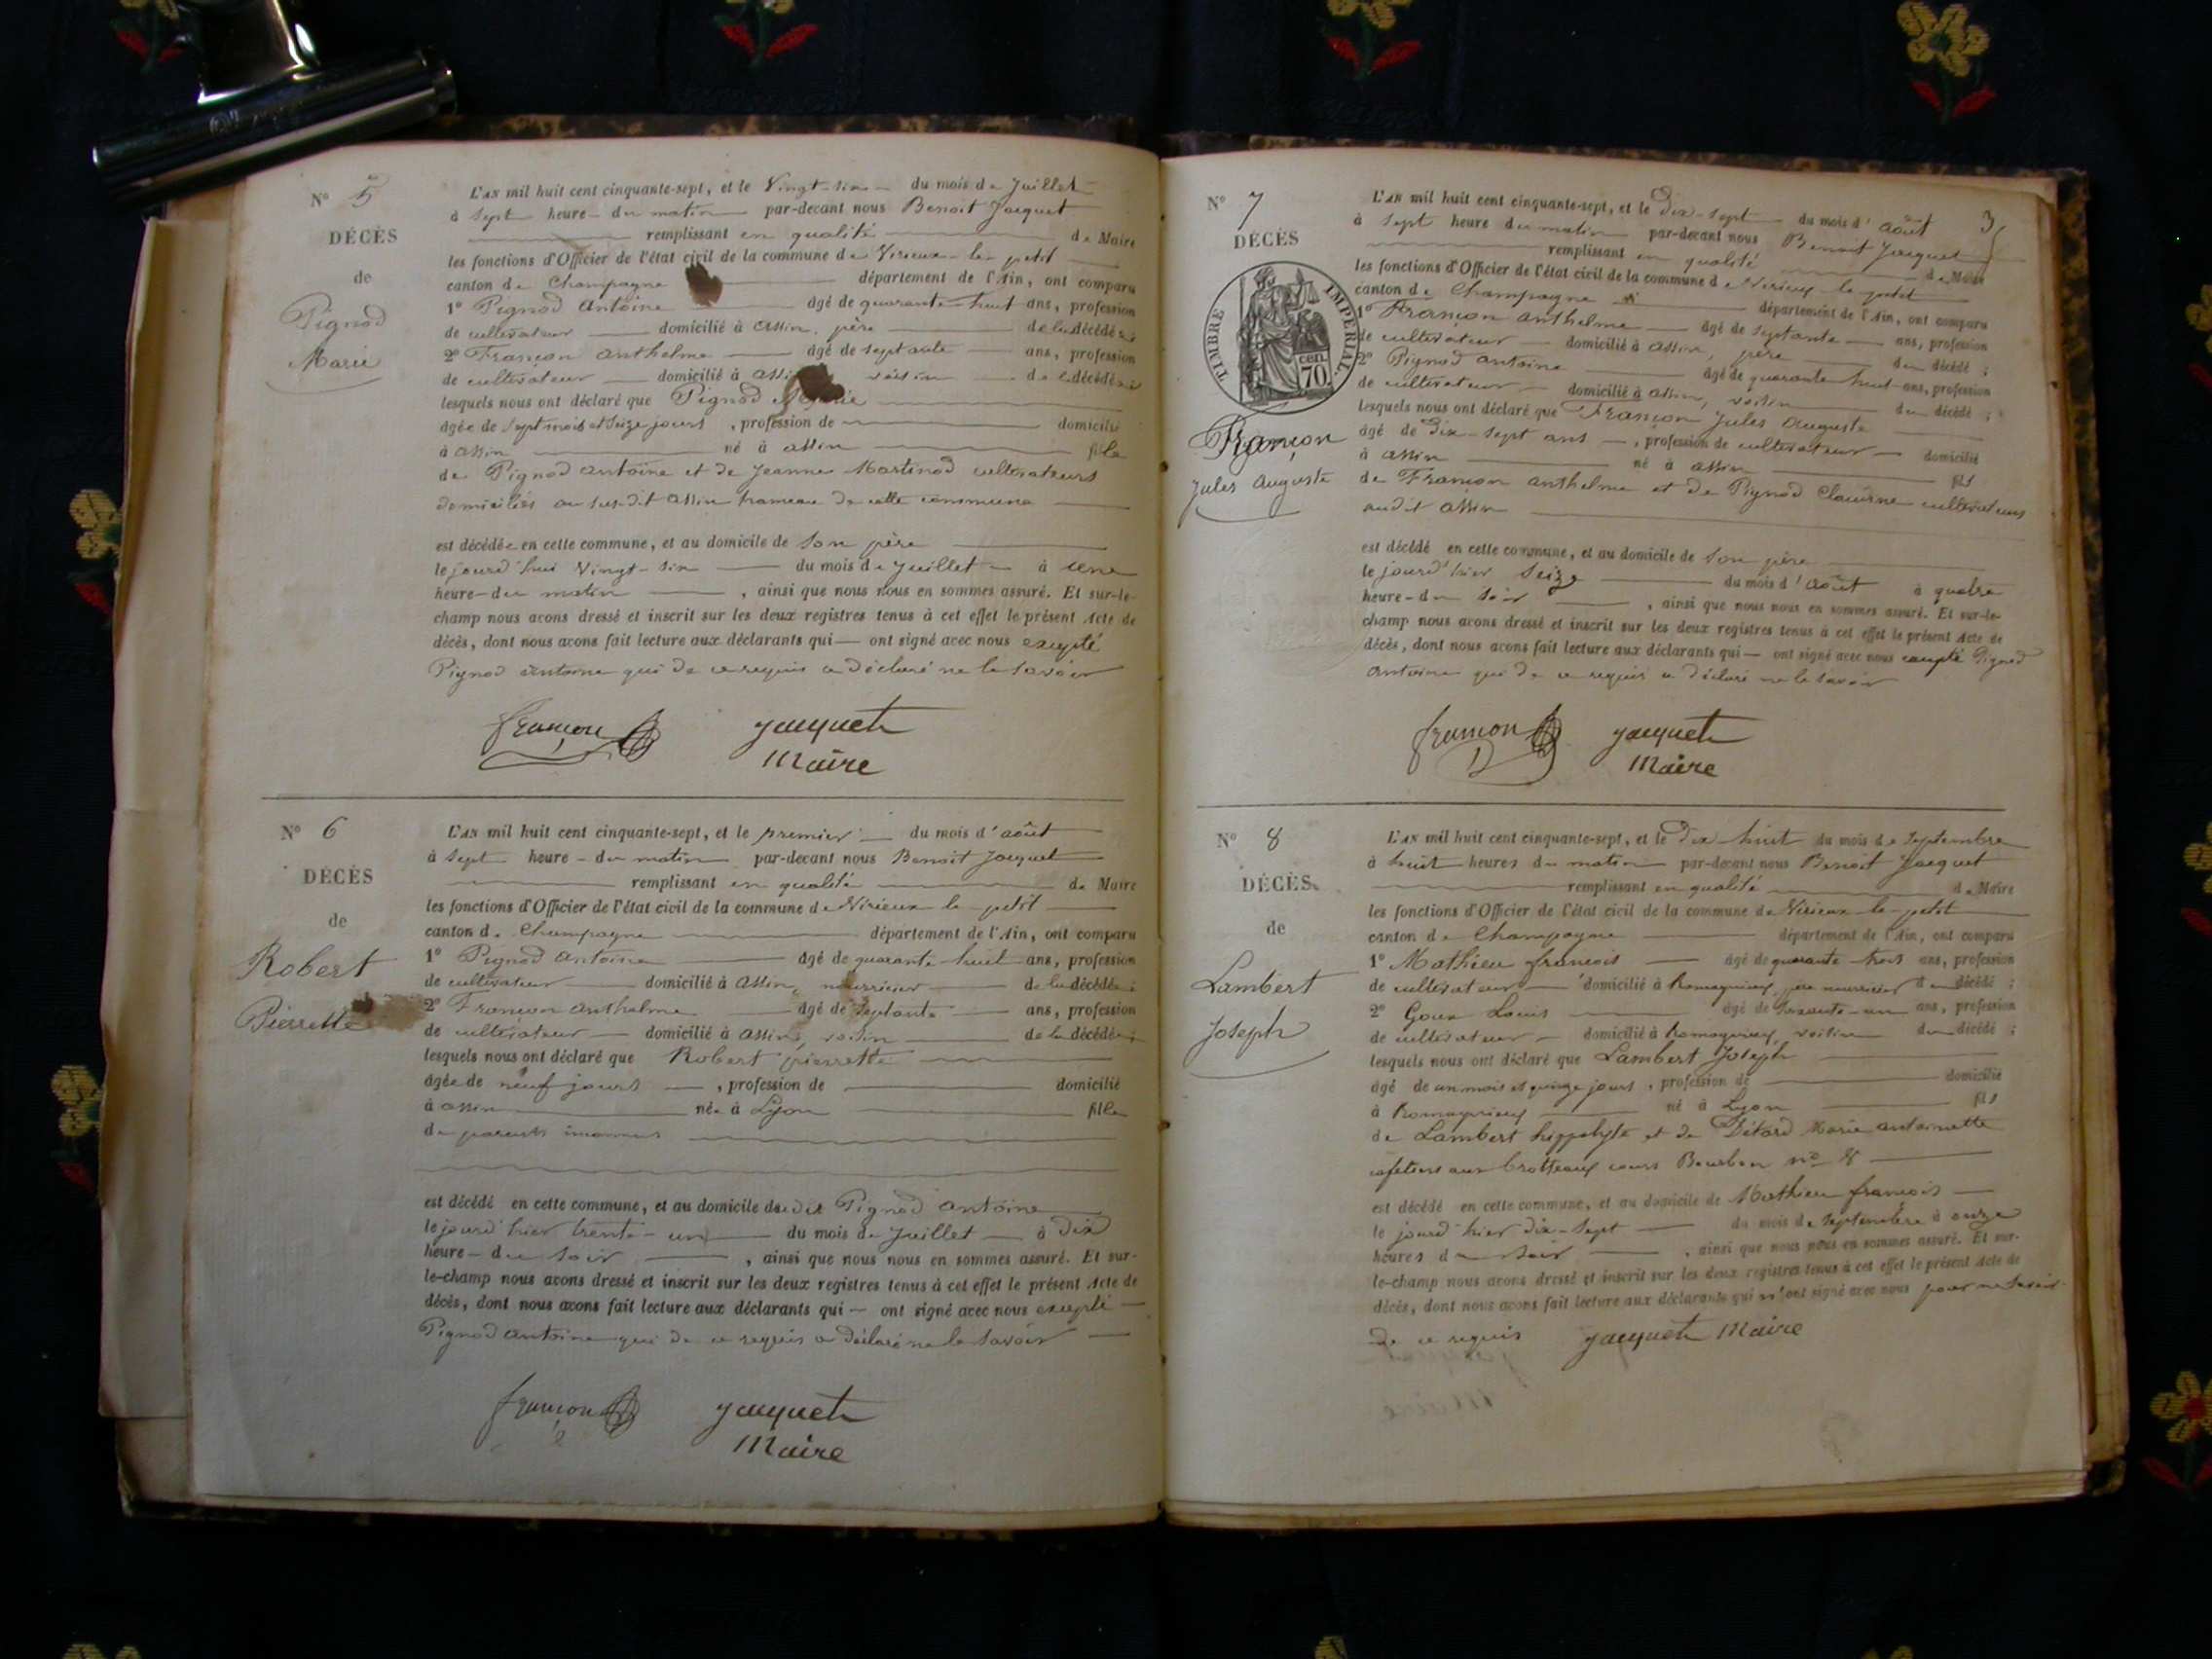 N° 5
DÉCÈS
de
Pignod
Marie
L'AN mil huit cent cinquante-sept, et le Vingt-six du mois de Juillet
à Sept heure du matin par-devant nous Benoit Jacquet
remplissant en qualité de Maire
les fonctions d'Officier de l'état civil de la commune de Virieux-le-petit
canton de Champagne département de l'Ain, ont comparu
1° Pignod Antoine âgé de quarante-huit ans, profession
de cultivateur domicilié à Assin, père de la décédée;
2° Françon Anthelme âgé de septante ans, profession
de cultivateur domicilié à voisin de la décédée;
lesquels nous ont déclaré que Pignod Marie
âgée de Sept mois et Seize jours, profession de domicilié
à Assin né à Assin fille
de Pignod Antoine et de Jeanne Martinod cultivateurs
domiciliés au susdit Assin hameau de cette commune
est décédée en cette commune, et au domicile de Son père
le jourd'hui Vingt-six du mois de Juillet à une
heure du matin, ainsi que nous nous en sommes assuré. Et sur-le-
champ nous avons dressé et inscrit sur les deux registres tenus à cet effet le présent Acte de
décès, dont nous avons fait lecture aux déclarants qui ont signé avec nous excepté
Pignod Antoine qui de ce requis a déclaré ne le savoir
françon jacquet
Maire
N° 6
DÉCÈS
de
Robert
Pierrette
L'AN mil huit cent cinquante-sept, et le premier du mois d'août
à Sept heure du matin par-devant nous Benoit Jacquet
remplissant en qualité de Maire
les fonctions d'Officier de l'état civil de la commune de Virieux-le-petit
canton de Champagne département de l'Ain, ont comparu
1° Pignod Antoine âgé de quarante-huit ans, profession
de cultivateur domicilié à Assin, nourricier de la décédée;
2° Françon Anthelme âgé de Septante ans, profession
de cultivateur domicilié à Assin, voisin de la décédée;
lesquels nous ont déclaré que Robert pierrette
âgée de neuf jours, profession de domicilié
à Assin née à Lyon fille
de parents inconnus
est décédé en cette commune, et au domicile dudit Pignod Antoine
le jourd'hier trente-un du mois de Juillet à Dix
heure du Soir, ainsi que nous nous en sommes assuré. Et sur-
le-champ nous avons dressé et inscrit sur les deux registres tenus à cet effet le présent Acte de
décès, dont nous avons fait lecture aux déclarants qui ont signé avec nous excepté
Pignod Antoine qui de ce requis a déclaré ne le savoir
françon jacquet
Maire
3
N° 7
DÉCÈS
TIMBRE IMPÉRIAL
70 cen.
Françon
Jules Auguste
L'AN mil huit cent cinquante-sept, et le Dix-sept du mois d'août
à Sept heure du matin par-devant nous Benoit Jacquet
remplissant en qualité de Maire
les fonctions d'Officier de l'état civil de la commune de Virieux-le-petit
canton de Champagne département de l'Ain, ont comparu
1° Françon Anthelme âgé de Septante ans, profession
de cultivateur domicilié à Assin, père du décédé;
2° Pignod Antoine âgé de quarante-huit ans, profession
de cultivateur domicilié à Assin, voisin du décédé;
lesquels nous ont déclaré que Françon Jules Auguste
âgé de Dix-sept ans, profession de cultivateur domicilié
à Assin né à Assin fils
de Françon Anthelme et de Pignod cultivateurs
audit Assin
est décédé en cette commune, et au domicile de Son père
le jourd'hier Seize du mois d'Août à quatre
heure du Soir, ainsi que nous nous en sommes assuré. Et sur-le-
champ nous avons dressé et inscrit sur les deux registres tenus à cet effet le présent Acte de
décès, dont nous avons fait lecture aux déclarants qui ont signé avec nous excepté Pignod
Antoine qui de ce requis a déclaré ne le savoir
françon jacquet
Maire
N° 8
DÉCÈS
de
Lambert
Joseph
L'AN mil huit cent cinquante-sept, et le Dix huit du mois de Septembre
à huit heures du matin par-devant nous Benoit Jacquet
remplissant en qualité de Maire
les fonctions d'Officier de l'état civil de la commune de Virieux-le-petit
canton de Champagne département de l'Ain, ont comparu
1° Mathieu françois âgé de quarante-trois ans, profession
de cultivateur domicilié à Romagnieux, père nourricier du décédé;
2° Goux Louis âgé de Soixante-un ans, profession
de cultivateur domicilié à Romagnieux, voisin du décédé;
lesquels nous ont déclaré que Lambert Joseph
âgé de un mois et quinze jours, profession de domicilié
à Romagnieux né à Lyon fils
de Lambert hippolyte et de Marie Antoinette
cafetiers aux brotteaux cours Bourbon n° 8
est décédé en cette commune, et au domicile de Mathieu françois
le jourd'hier dix-sept du mois de Septembre à onze
heures du soir, ainsi que nous nous en sommes assuré. Et sur-
le-champ nous avons dressé et inscrit sur les deux registres tenus à cet effet le présent Acte de
décès, dont nous avons fait lecture aux déclarants qui n'ont signé avec nous pour ne savoir
de ce requis jacquet Maire